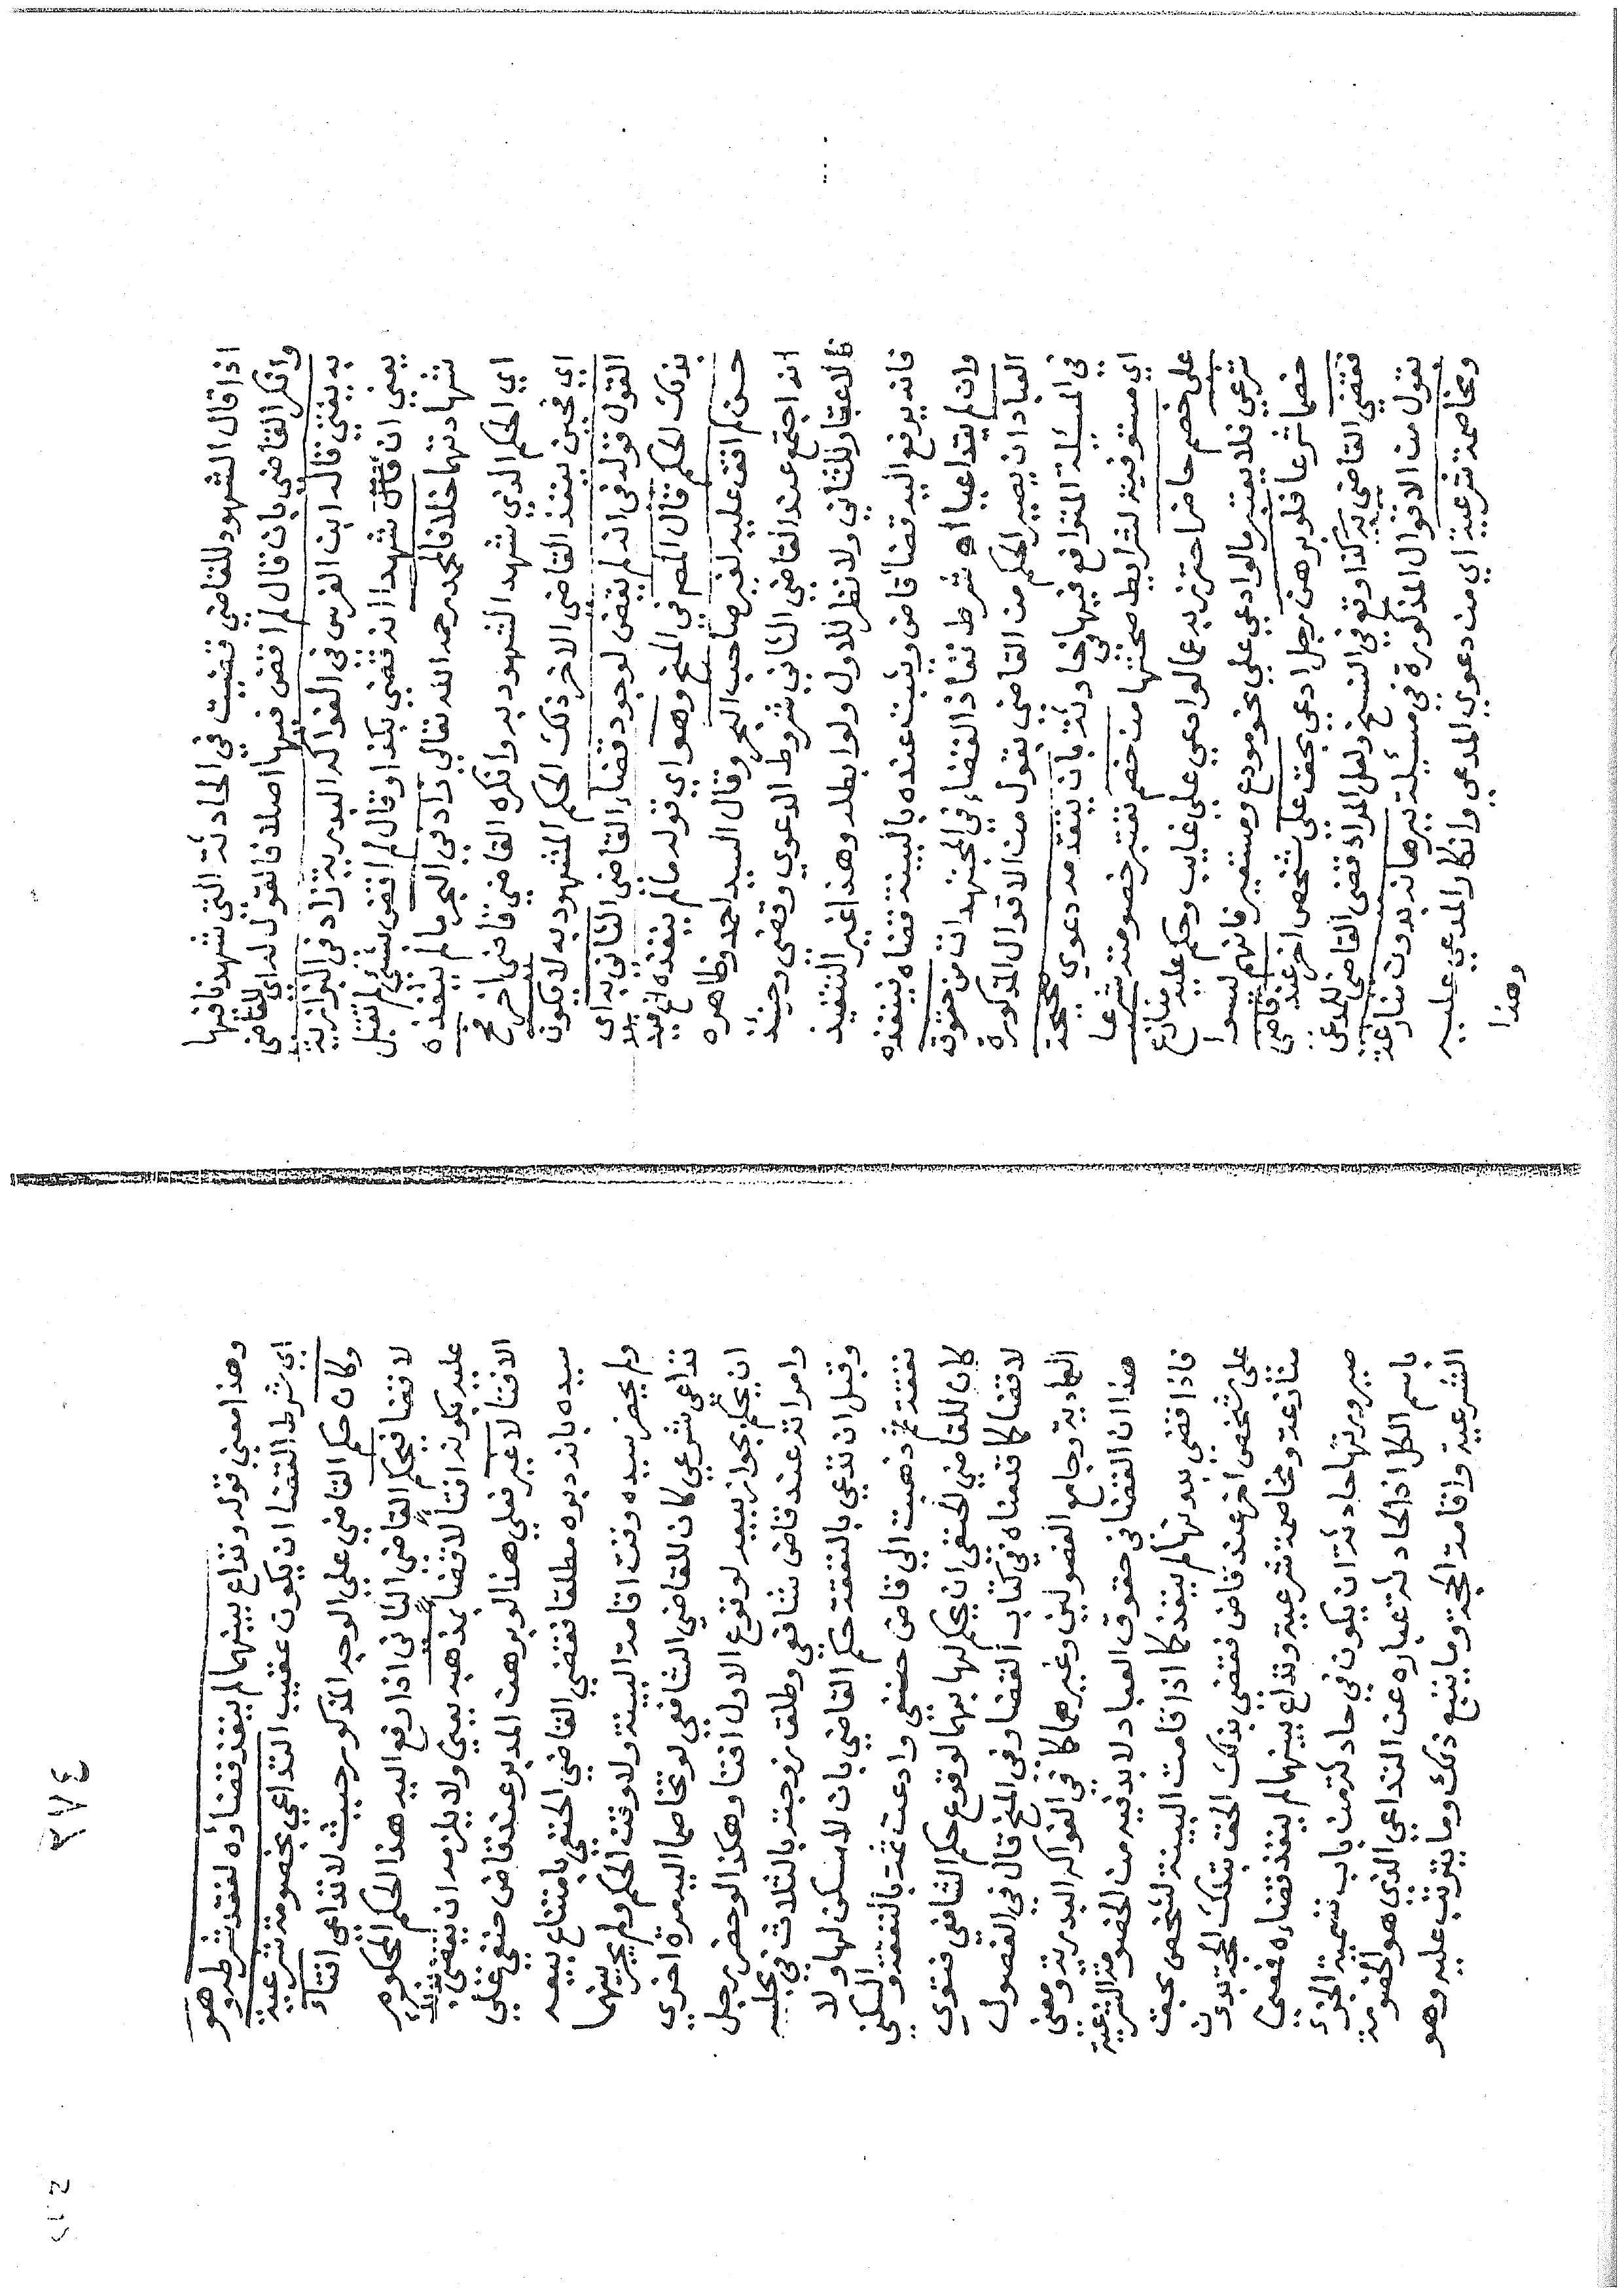 اذا قال الشهود للقاضي قضيت في الحادثة التي شهدنا فيها
وانكر القاضي بان قال لم اقض فيها اصلا فالقول له اي للقاضي
به يفتي قاله ابن الغرس في الفواكه البدرية زاد في البزازية
يعني ان قال شهدا انه قضي بكذا وقال لم اقض بشئ لم تقبل
شهادتهما خلافا لمحمد رحمه الله تعالي زاد في البحر ما لم ينفذه
اي الحكم الذي شهد الشهود به وانكره القاضي قاضي اخر
اي فحين ينفذ القاضي الاخر ذلك الحكم المشهود به لا يكون
القول قوله في انه لم يقض لوجود قضاء القاضي الثاني به اي
بذلك الحكم قال المص في المنح وهو اي قوله ما لم ينفذه الخ قيد
حسن لم اقف عليه لغير صاحب البحر وقال السيد احمد وظاهره
انه اجتمع عند القاضي الثاني شروط الدعوي وقضي وحينئذ
فالاعتبار للثاني ولا نظر للاول ولو ابطله وهذا غير التنفيذ
فانه يرفع اليه قضاء قاض ويثبت عنده بالبينة قضاه فينفذه
وان لم يتداعيا اه شرط نفاذ القضاء في المجتهدات من حقوق
العباد ان يصير الحكم من القاضي بقول من الاقوال المذكورة
في المسئلة المترافع فيها في حادثة بان يتقدمه دعوي صحيحة
اي مستوفية لشرايط صحتها من خصم تعتبر خصومته شرعا
علي خصم حاضر احترز به عما لو ادعي علي غايب وحكم عليه منازع
شرعي فلا يعتبر ما لو ادعي علي نحو مودع ومستعير فانهم ليسوا
خصما شرعا فلو برهن رجل ادعي بحق علي شخص اخر عند قاضي
فقضي القاضي به كذا وقع في النسخ ولعل المراد فقضي القاضي للمدعي
بقول من الاقوال المذكورة في مسئلة ببرهانه بدون منازعة
ومخاصمة شرعية اي من دعوي المدعي وانكار المدعي عليه
وهذا
٢٧٤
وهذا معني قوله وتداع بينهما لم ينفذ قضاؤه لفقد شرطه وهو
اي شرط القضا ان يكون عقيب التداعي بخصومة شرعية
وكان حكم القاضي علي الوجه المذكور حيث لا تداعي افتاء
لا قضا فيحكم القاضي الثاني اذا رفع اليه هذا الحكم المحكوم
عليه بكونه افتا لا قضا بمذهبه يعني ولا يلزمه ان يقضي بذلك
الافتا لا غير فعلي هذا لو برهن المدبر عند قاض حنفي علي
سيده بانه دبره مطلقا فقضي القاضي الحنفي بامتناع بيعه
ولم يحضر سيده وقت اقامة البينة ولا وقت الحكم ولم يجر بينهما
تداعي شرعي كان للقاضي الشافعي لو تخاصما اليه مرة اخري
ان يحكم بجواز بيعه لوقوع الاول افتا وهكذا لو حضر رجل
وامراته عند قاض شافعي وطلق زوجته بالثلاث في مجلسه
وقبل ان تدعي بالنفقة حكم القاضي بان لا سكن لها ولا
نفقة ثم ذهبت الي قاض حنفي وادعت ثمت بالنفقة والسكني
كان للقاضي الحنفي ان يحكم لها بهما لوقوع حكم الشافعي فتوي
لا قضا كما قدمناه في كتاب القضا وفي المنح قال في الفصول
العمادية وجامع الفصولين وغيرهما كما في الفواكه البدرية ومعني
هذا ان القضا في حقوق العباد لا بد فيه من الخصومة الشرعية
فاذا قضي بدونها لم ينفذ كما اذا قامت البينة لشخص بحق
علي شخص اخر عند قاض فقضي بذلك الحق بتلك الحجة بدون
منازعة ومخاصمة شرعية وتداع بينهما لم ينفذ قضاءه فمعني
صيرورتها حادثة ان يكون في حادثة من باب تسمية الجزء
باسم الكل اذ الحادثة عباره عن التداعي الذي هو الخصومة
الشرعية واقامة الحجة وما يتبع ذلك وما يترتب عليه وهو